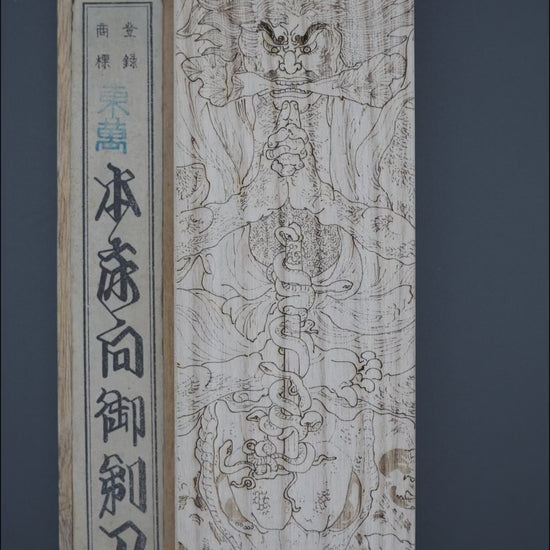 登録
商標
東萬
本床向御剃刀